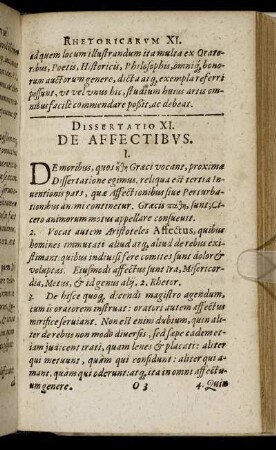 RHETORICARVM XI.
ad quem locum illustrandum ita multa ex Orato-
ribus, Poetis, Historicis, Philosophis, omniq́, bono-
rum auctorum genere, dicta atq́, exempla referri
possunt, vt vel vnus hic, studium huius artis om-
nibus facile commendare possit, ac debeat.
DISSERTATIO XI.
DE AFFECTIBVS.
I.
DE moribus, quos ἤθη Græci vocant, proximâ
Dissertatione egimus. reliqua est tertia In-
uentionis pars, quæ Affectionibus siue Perturba-
tionibus animi continetur. Græcis πάθη, sunt; Ci-
cero animorum motus appellare consueuit.
2. Vocat autem Aristoteles Affectus, quibus
homines immutati aliud atq́, aliud de rebus exi-
stimant: quibus indiuisi fere comites sunt dolor &
voluptas. Eiusmodi affectus sunt Ira, Misericor-
dia, Metus, & id genus alij. 2. Rhetor.
3. De hisce quoq́, dicendi magistro agendum,
cum is oratorem instruat: oratori autem affectus
mirifice seruiant. Non est enim dubium, quin ali-
ter de rebus non modo diuersis, sed sæpe eadem et-
iam judicent irati, quam lenes & placati: aliter
qui metuunt, quàm qui confidunt: aliter qui a-
mant, quàm qui oderunt: atq́, ita in omni affectu-
um genere.
O 3
4. Quin